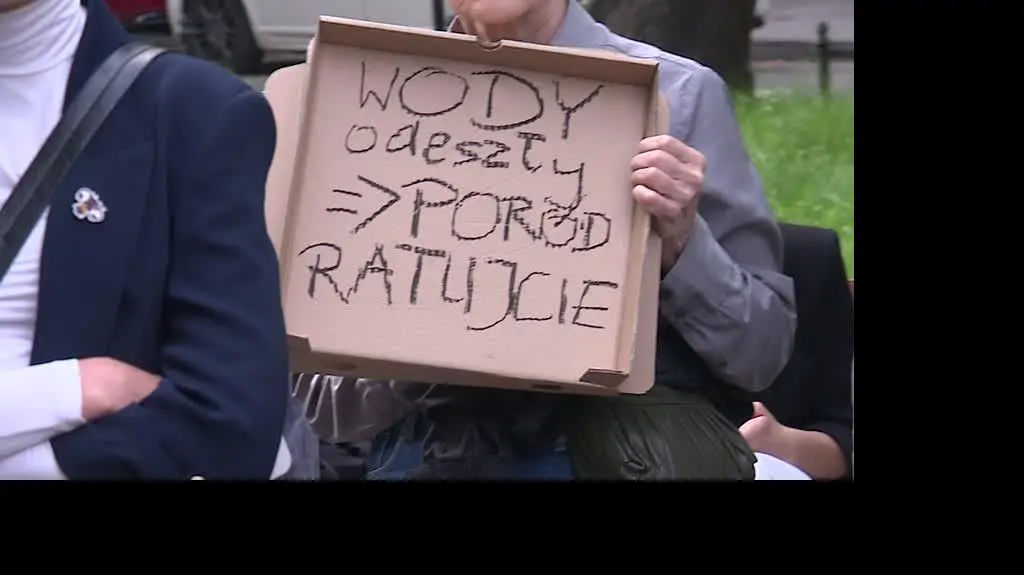 WODY
odeszty
=> PORÓD
RATUJCIE